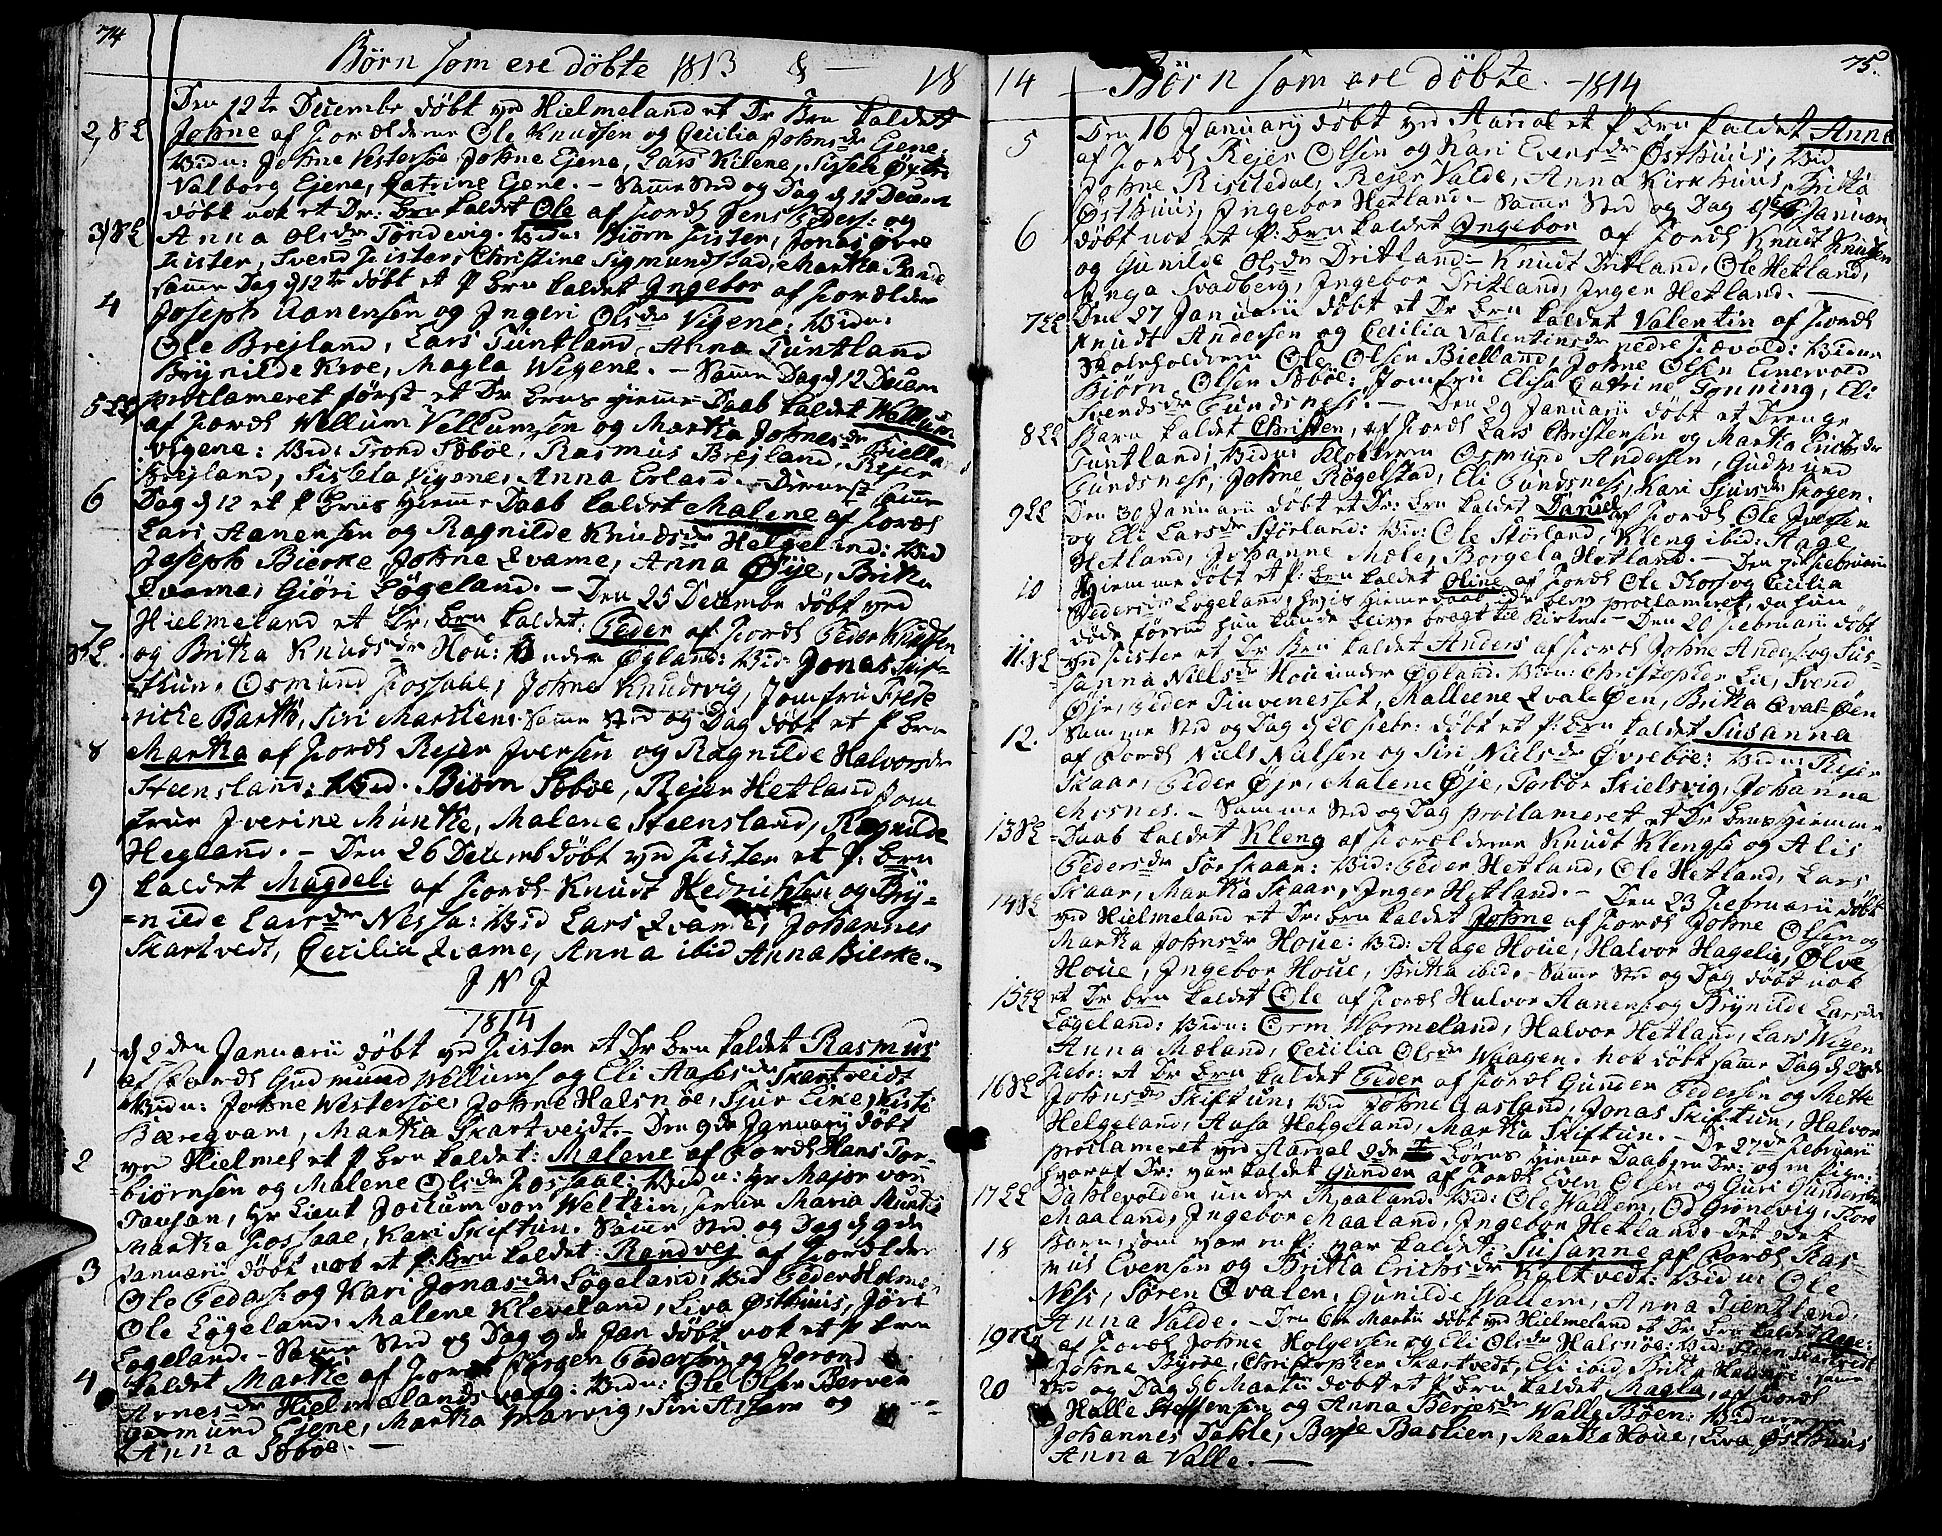 74
Børn som ere døbte 1813 & — 18
Den 12te Decembr døbt ved Hielmeland et Dr Brn kaldet
2, 8L Johne af Forældrene Ole Knudsen og Cecilia Johnsdr Ejene:
Vidn: Johne Vestersøe, Johne Ejene, Lars Kilene, Sissele
Valborg Ejene, Catrine Ejene. – Samme Sted og Dag d 12 Decem
døbt nok et Dr: Brn kaldet Ole af Forældr Jens Peders: og
3, 8L Anna Olsdr Tøndevig. Vidn: Biørn Fister, Jonas Øvre
Fister, Svend Fister, Christine Sigmundstad, Martha Rande
samme Dag d 12te døbt et P Brn kaldet Ingebor af Forældre
4 Joseph Aanensen og Ingeri Olsdr Vigene: Vidn:
Ole Brejland, Lars Tuntland, Anna Tuntland
Brynilde Kroe, Magla Wigene. – Samme Dag d 12 Decem
proclameret først et Dr Brns hjemme Daab kaldet Wellum
5 LL af Forældr Wellum Vellumsen og Martha Johnesdr
Vigene: Vid: Trond Sæbøe, Rasmus Brejland, Rejer
Brejland, Sissela Vigene, Anna Erland. – Dernæst samme
6 Dag d 12 et P Brns hjemme Daab kaldet Malene af Forældr
Lars Aanensen og Ragnilde Knudsdr Helgeland: Vid
Joseph Bierke, Johne Qvame, Anna Øije, Britha
Qvame, Giøri Løgeland. – Den 25 Decembr døbt ved
Hielmeland et Dr: Brn kaldet: Peder af Forældr Peder Knudsen
7 8L. og Britha Knudsdr Hou: under Øgland: Vid: Jonas Skif-
=thun, Osmund Fossaae, Johne Knudsvig, Jomfru Frede
ricke Barth, Siri Marthens. Samme Sted og Dag døbt et P Brn
8 Martha af Forældr Rejer Iversen og Ragnilde Halvorsdr
Steensland: Vid. Biørn Sæbøe, Rejer Hetland, Jom
fru Iverine Munthe, Malene Steensland, Ragnilde
Hegland. – Den 26 Decemb døbt ved Fister et P: Brn
9 kaldet Magdeli af Forældr Knudt Hedrichsen og Bry=
=nilde Larsdr Nessa: Vid Lars Qvame, Johannes
Skartvedt, Cecilia Qvame, Anna ibid Anna Bierke. –
J N J
1814
1 d 2den Januarii døbt ved Fister et Dr Brn kaldet Rasmus
af Forældr Gudmund Wellums og Eli Aasesdr Skartveidt
Vidn: Johne Westersøe, Johne Halsnøe, Sjur Eike, Kisti
Bæreqvam, Martha Skartveidt. – Den 9de January døbt
2 ved Hielmel et P Brn kaldet: Malene af Forældr Hans Tor-
biørnsen og Malene Olsdr Fossaae: Vidn: Hr Major von
Tausan, Hr Lieut Joikum von Weltzin, Frue Maria Munthe
Martha Fossaae, Kari Skiftun. Samme Sted og Dag d 9de
3 Januarii døbt nok et P: Brn kaldet: Randvej af Forældre
Ole Peders: og Kari Jonasdr Løgeland: Vid Peder Holme
Ole Løgeland, Malene Kleveland, Liva Østhuus, Jøri
Løgeland. – Samme Sted og Dag 9de Jan døbt nok et P Brn
4 kaldet Marthe af Forældr Jørgen Pedersen og Jorond
Arnesdr Hielmelandsvaag: Vidn: Ole Olsen Berven
Gudmund Ejene, Martha Marvig, Siri og
Anna Sæbøe. –
14 Børn som ere døbte. – 1814 75.
5 Den 16 January døbt ved Aardal et P Brn kaldet Anna
af Forældr Rejer Olsen og Kari Evensdr Østhuus; Vid
Johne Riskedal, Rejer Valde, Anna Kirkhuus, Britha
Østhuus, Ingebor Hetland. – Samme Sted og Dag d 16 Januari
6 døbt nok et P: Brn kaldet Ingebor af Forældr Knudt Knudsen
og Gunilde Olsdr Dritland: – Knudt Dritland, Ole Hetland,
Anga Svadberg, Ingebor Dritland, Inger Hetland. –
7 LL Den 27 Januarii døbt et Dr Brn kaldet Valentin af Forældr
Knudt Andersen og Cecilia Valentinsdr nedre Sævold: Vidn
Skoleholderen Ole Olsen Bielland, Johne Olsen Einervold
Biørn Olsen Sæbøe, Jomfru Elisa Catrine Tønning, Eli
Svendsdr Gundsness. – Den 29 Januarii døbt et Drenge
8 LL Barn kaldet Christen, af Forældr Lars Christensen og Martha Erichsdr
Tuntland; Vidn: Klokkeren Osmund Andersen, Gudmund
Gundsness, Johne Røgelstad, Eli Gundsness, Kari Sjursdr Skogen.
9 LL Den 30 Januarii døbt et Dr: Brn kaldet Daniel af Forældr Ole Iversen
og Eli Larsdr Størland: Vid: Ole Størland, Kleng ibid: Aage
Hetland, Johanne Mæle, Borgela Hetland. – Den 7de Februarii
10 Hjemme døbt et P: Brn kaldet Oline af Forældr Ole Thors og Cecilia
Pedersdr Løgeland, hvis hjemme daab blev proclameret, da hun
døde førend hun kunde blive bragt til Kirken. – Den 20 Februarii døbt
11. 8L ved Fister et Dr Brn kaldet Anders af Forældr Johne Anders: og Sus-
sanna Nielsdr Hou under Øgland: Vidn: Christopher Lie, Svend
Øije, Peder Tinvenesset, Malleene Qval=Øen, Britha Qval=Øen
12. Samme Sted og Dag d 20 Febr: døbt et P: Brn kaldet Susanna
af Forældr Niels Nielsen og Siri Nielsdr Øvrebøe: Vidn: Rejer
Skaar, Peder Øije, Malene Øje, Torbør Skielsvig, Johanna
Mosnes. – Samme Sted og Dag proclameret et Dr Brns Hiemme
13 8L =Daab kaldet Kleng af Forældrene Knudt Klengs: og Alis
Pedersdr Sør Skaar: – Vid: Peder Hetland, Ole Hetland, Lars
Skaar, Martha Skaar, Inger Hetland. – Den 23 Februarii døbt
14 8L ved Hielmeland et Dr: Brn kaldet Johne af Forældr Johne Olsen og
Martha Johnsdr Houe: Vid: Aage Houe, Halvor Hagelie, Ølve
Houe, Ingebor Houe, Britha ibid. – Samme Sted og Dag døbt nok
15 LL et Dr brn kaldet Ole af Forældr Halvor Aanens: og Brynilde Larsdr
Løgeland: Vidn: Orm Wormeland, Halvor Hetland, Lars Wigen
Anna Mæland, Cecilia Olsdr Waagen. nok døbt samme Dag d 23de
16 8L Febr: et Dr Brn kaldet Peder af Forældr Gunder Pedersen og Mette
Johnsdr Skiftun: Vid Johne Aasland, Jonas Skiftun, Halvor
Helgeland, Aasa Helgeland, Martha Skiftun. – De 27de Februarii
proclameret ved Aardal 2de Børns hjemme Daab, en Dr: og en Pige:
hvoraf Dr: var kaldet Gunder af Forældr Even Olsen og Guri Gundersdr
17 LL Dahlevolden under Maaland: Vid: Ole Wallem, Od Grønevig,
Maaland, Ingebor Maaland, Ingebor Hetland. Det 2det
18 Barn, som var en P: var kaldet: Susanne af Forældr Ras-
mus Evensen og Britha Erichsdr Vidn: Ole
Ness, Søren Qvalen, Gunilde Wallem, Anna Tientland,
Anna Valde. – Den 6te Martii døbt ved Hielmeland et Dr: Brn kaldet Aage:
19 af Forældr Johne Holgersen og Eli Olsdr Halsnøe: Vid: Skartvedt
Johne Byrde, Christopher Skartvedt, Eli ibid Britha Halsnøe: samme
20 Sted og Dag d 6 Martii døbt et P Brn kaldet Magla, af Forældr
Halle Steffensen og Anna Berjesdr Walle Bøen: Vidn:
Johannes Tahle, Børje Bastlien, Martha Houe, Liva Østhuus
Anna Valle. –